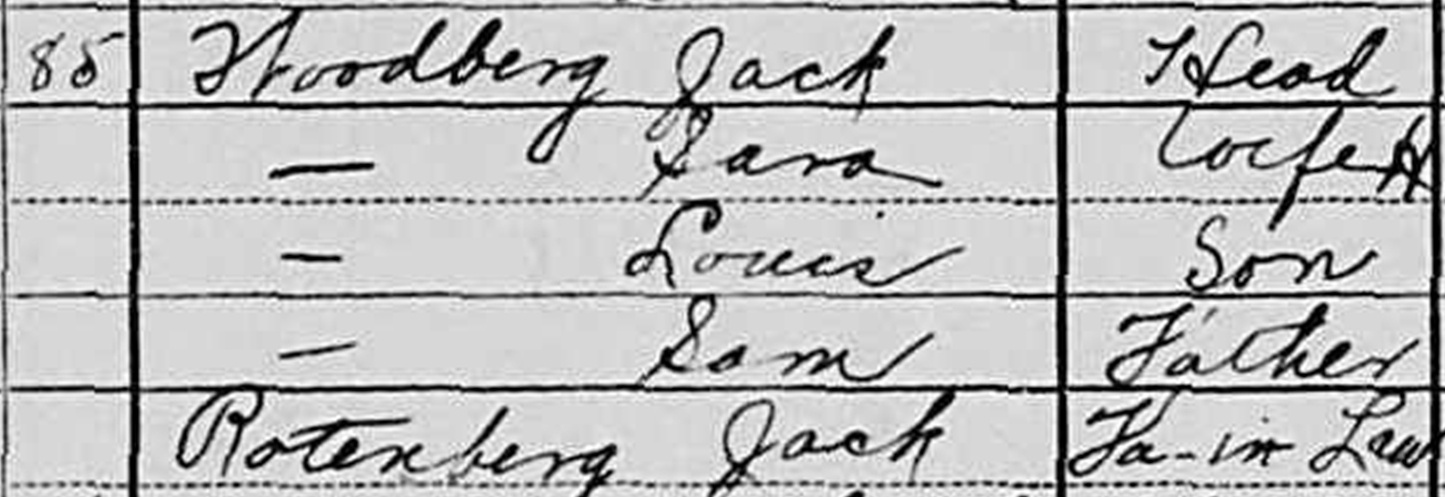 85 Woodberg Jack Head
— Sara Wife H
— Louis Son
— Sam Father
Rotenberg Jack Fa-in Law